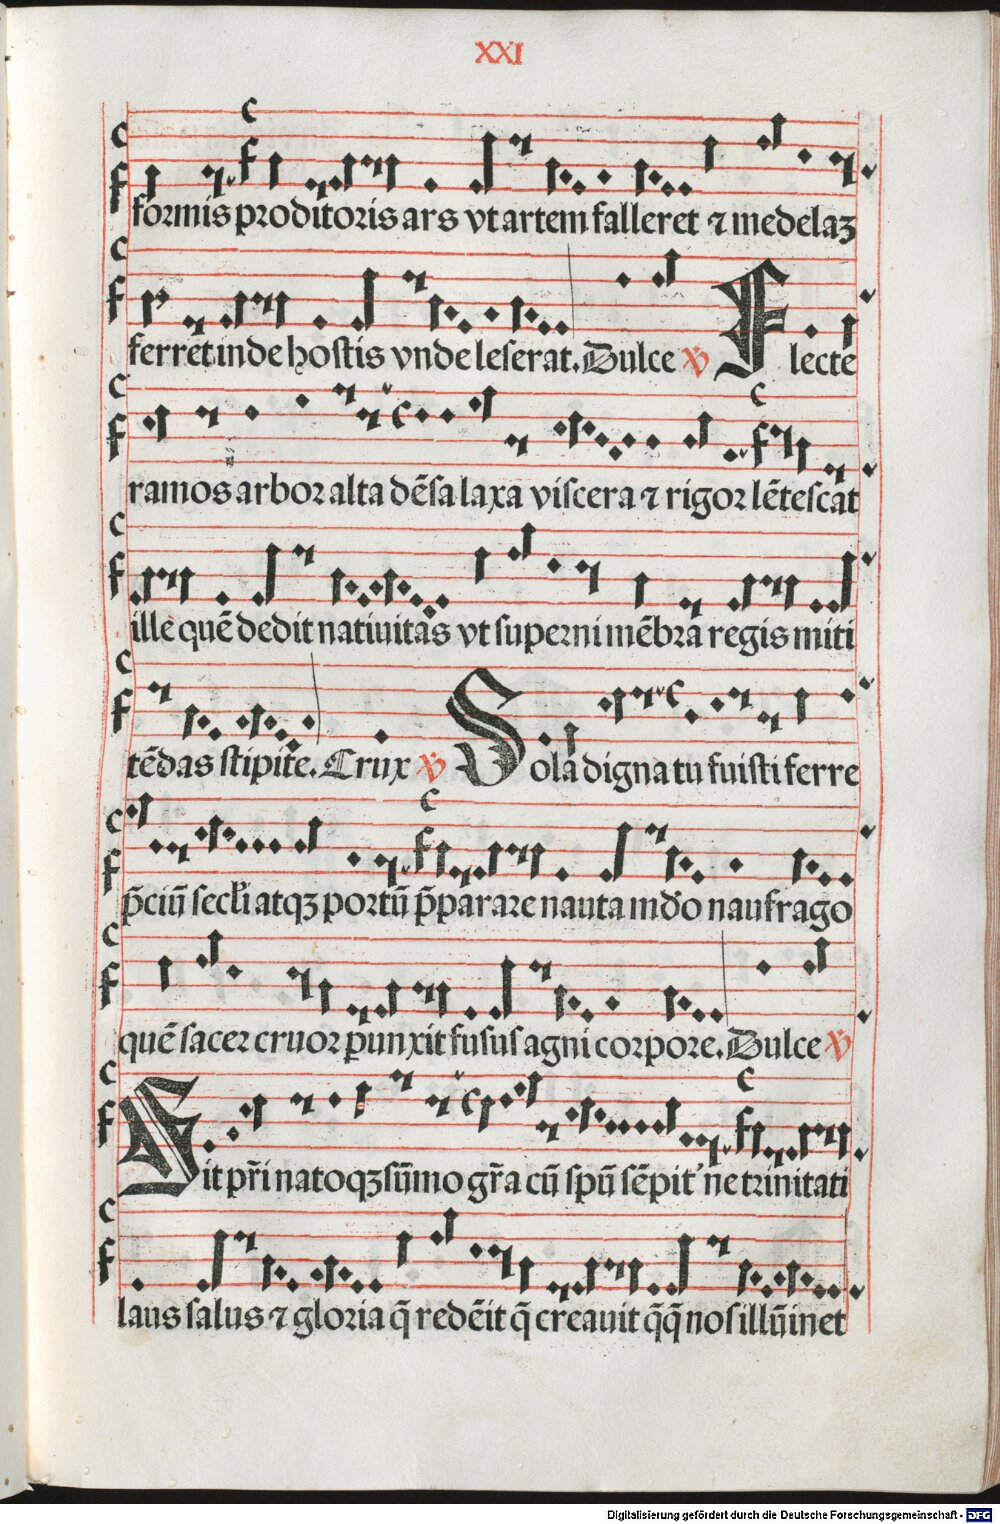 XXI
formis proditoris ars vt artem falleret ⁊ medelaʒ
ferret inde hostis vnde leserat. Dulce ℣ Flecte
ramos arbor alta dēsa laxa viscera ⁊ rigor lētescat
ille quē dedit natiuitas vt superni mēbra regis miti
tēdas stipite. Crux ℣ Sola digna tu fuisti ferre
p̄ciū secl̓i atqʒ portū p̄parare nauta mūdo naufrago
quē sacer cruor punxit fusus agni corpore. Dulce ℣
Sit pr̄i natoqʒ sūmo gr̄a cū spū sēpit'ne trinitati
laus salus ⁊ gloria q̄ redēit q̄ creauit q̄q̄ nos illūinet
Digitalisierung gefördert durch die Deutsche Forschungsgemeinschaft - DFG